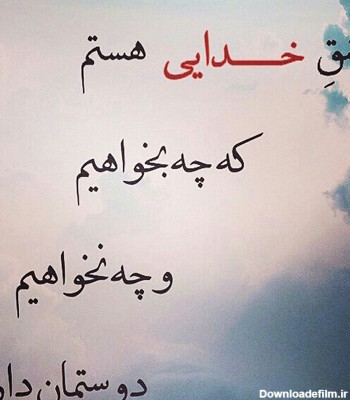 خدایی هستم
که چه بخواهیم
و چه نخواهیم
دوستمان
Downloadefilm.ir